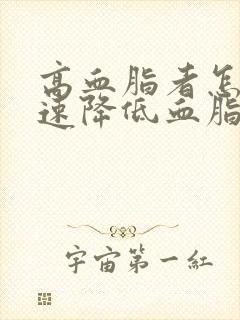 高血脂者怎
速降低血脂
宇宙第一红